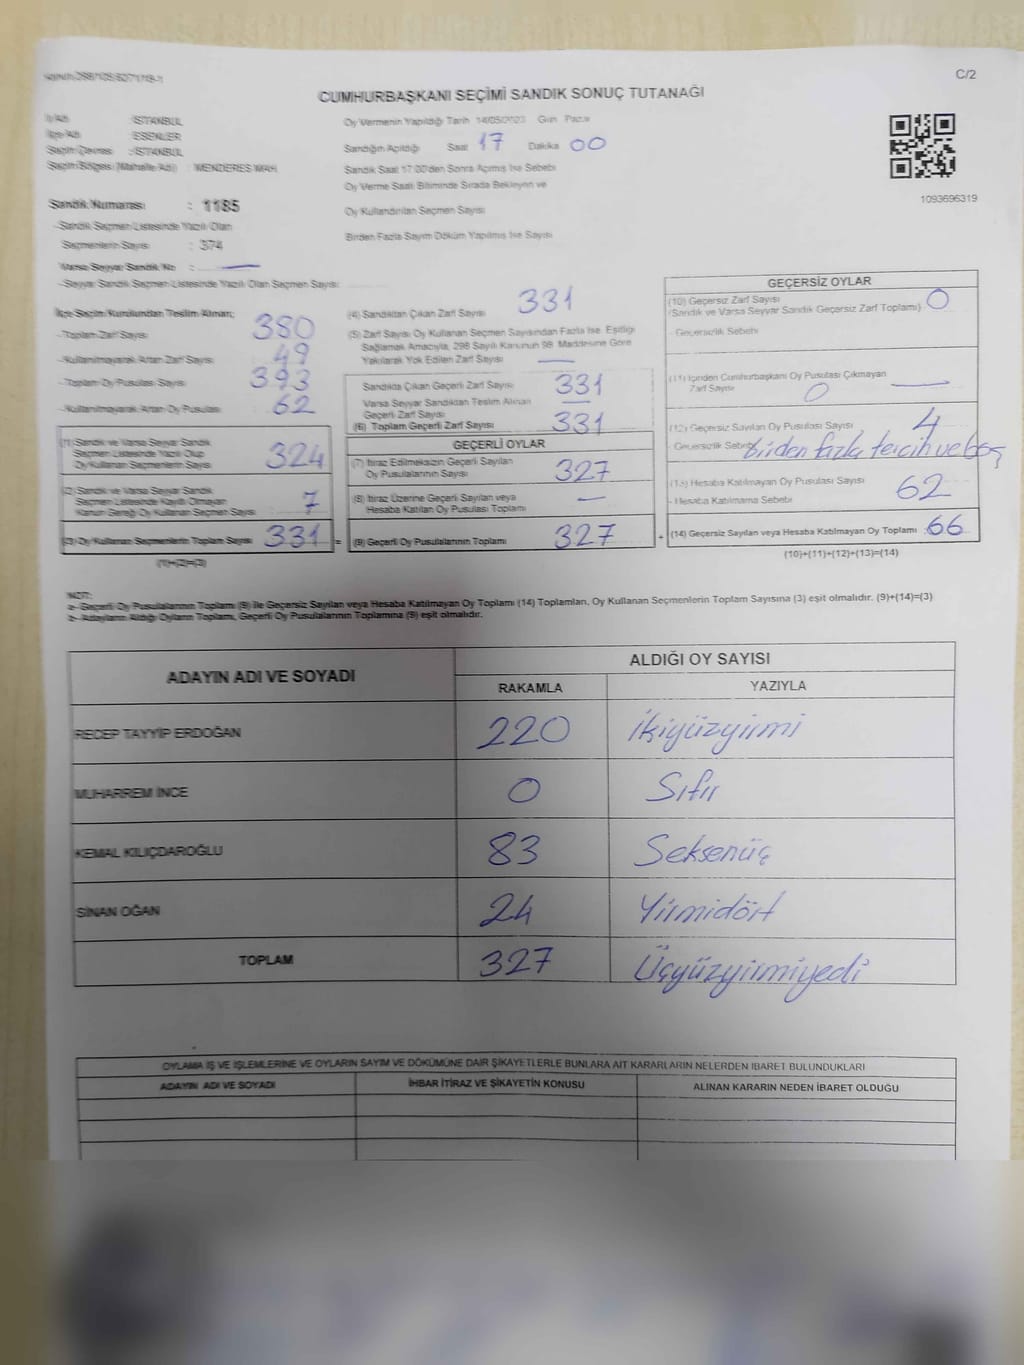 C/2
CUMHURBAŞKANI SEÇİMİ SANDIK SONUÇ TUTANAĞI
İl Adı : İSTANBUL
İlçe Adı : ESENLER
Seçim Çevresi : İSTANBUL
Seçim Bölgesi (Mahalle Adı) : MENDERES MAH
Sandık Numarası : 1185
-Sandık Seçmen Listesinde Yazılı Olan
Seçmenlerin Sayısı : 374
Varsa Seyyar Sandık No : —
-Seyyar Sandık Seçmen Listesinde Yazılı Olan Seçmen Sayısı :
Oy Vermenin Yapıldığı Tarih 14/05/2023 Gün Pazar
Sandığın Açıldığı Saat 17 Dakika 00
Sandık Saat 17:00'den Sonra Açılmış İse Sebebi
Oy Verme Saati Bitiminde Sırada Bekleyen ve
Oy Kullandırılan Seçmen Sayısı
Birden Fazla Sayım Döküm Yapılmış İse Sayısı
1093696319
İlçe Seçim Kurulundan Teslim Alınan;
-Toplam Zarf Sayısı 380
-Kullanılmayarak Artan Zarf Sayısı 49
-Toplam Oy Pusulası Sayısı 393
-Kullanılmayarak Artan Oy Pusulası 62
(1) Sandık ve Varsa Seyyar Sandık
Seçmen Listesinde Yazılı Olup
Oy Kullanan Seçmenlerin Sayısı 324
(2) Sandık ve Varsa Seyyar Sandık
Seçmen Listesinde Kayıtlı Olmayan
Kanun Gereği Oy Kullanan Seçmen Sayısı 7
(3) Oy Kullanan Seçmenlerin Toplam Sayısı 331 =
(1)+(2)=(3)
(4) Sandıktan Çıkan Zarf Sayısı 331
(5) Zarf Sayısı Oy Kullanan Seçmen Sayısından Fazla İse Eşitliği
Sağlamak Amacıyla, 298 Sayılı Kanunun 98. Maddesine Göre
Yakılarak Yok Edilen Zarf Sayısı —
Sandıkta Çıkan Geçerli Zarf Sayısı 331
Varsa Seyyar Sandıktan Teslim Alınan
Geçerli Zarf Sayısı —
(6) Toplam Geçerli Zarf Sayısı 331
GEÇERLİ OYLAR
(7) İtiraz Edilmeksizin Geçerli Sayılan
Oy Pusulalarının Sayısı 327
(8) İtiraz Üzerine Geçerli Sayılan veya
Hesaba Katılan Oy Pusulası Toplamı —
(9) Geçerli Oy Pusulalarının Toplamı 327 +
GEÇERSİZ OYLAR
(10) Geçersiz Zarf Sayısı 0
(Sandık ve Varsa Seyyar Sandık Geçersiz Zarf Toplamı)
- Geçersizlik Sebebi
(11) İçinden Cumhurbaşkanı Oy Pusulası Çıkmayan
Zarf Sayısı 0 —
(12) Geçersiz Sayılan Oy Pusulası Sayısı 4
- Geçersizlik Sebebi birden fazla tercih ve boş
(13) Hesaba Katılmayan Oy Pusulası Sayısı 62
- Hesaba Katılmama Sebebi
(14) Geçersiz Sayılan veya Hesaba Katılmayan Oy Toplamı 66
(10)+(11)+(12)+(13)=(14)
NOT:
a- Geçerli Oy Pusulalarının Toplamı (9) ile Geçersiz Sayılan veya Hesaba Katılmayan Oy Toplamı (14) Toplamları, Oy Kullanan Seçmenlerin Toplam Sayısına (3) eşit olmalıdır. (9)+(14)=(3)
2- Adayların Aldığı Oyların Toplamı, Geçerli Oy Pusulalarının Toplamına (9) eşit olmalıdır.
ADAYIN ADI VE SOYADI
ALDIĞI OY SAYISI
RAKAMLA YAZIYLA
RECEP TAYYİP ERDOĞAN 220 İkiyüzyirmi
MUHARREM İNCE 0 Sıfır
KEMAL KILIÇDAROĞLU 83 Seksenüç
SİNAN OĞAN 24 Yirmidört
TOPLAM 327 Üçyüzyirmiyedi
OYLAMA İŞ VE İŞLEMLERİNE VE OYLARIN SAYIM VE DÖKÜMÜNE DAİR ŞİKAYETLERLE BUNLARA AİT KARARLARIN NELERDEN İBARET BULUNDUKLARI
ADAYIN ADI VE SOYADI İHBAR İTİRAZ VE ŞİKAYETİN KONUSU ALINAN KARARIN NEDEN İBARET OLDUĞU